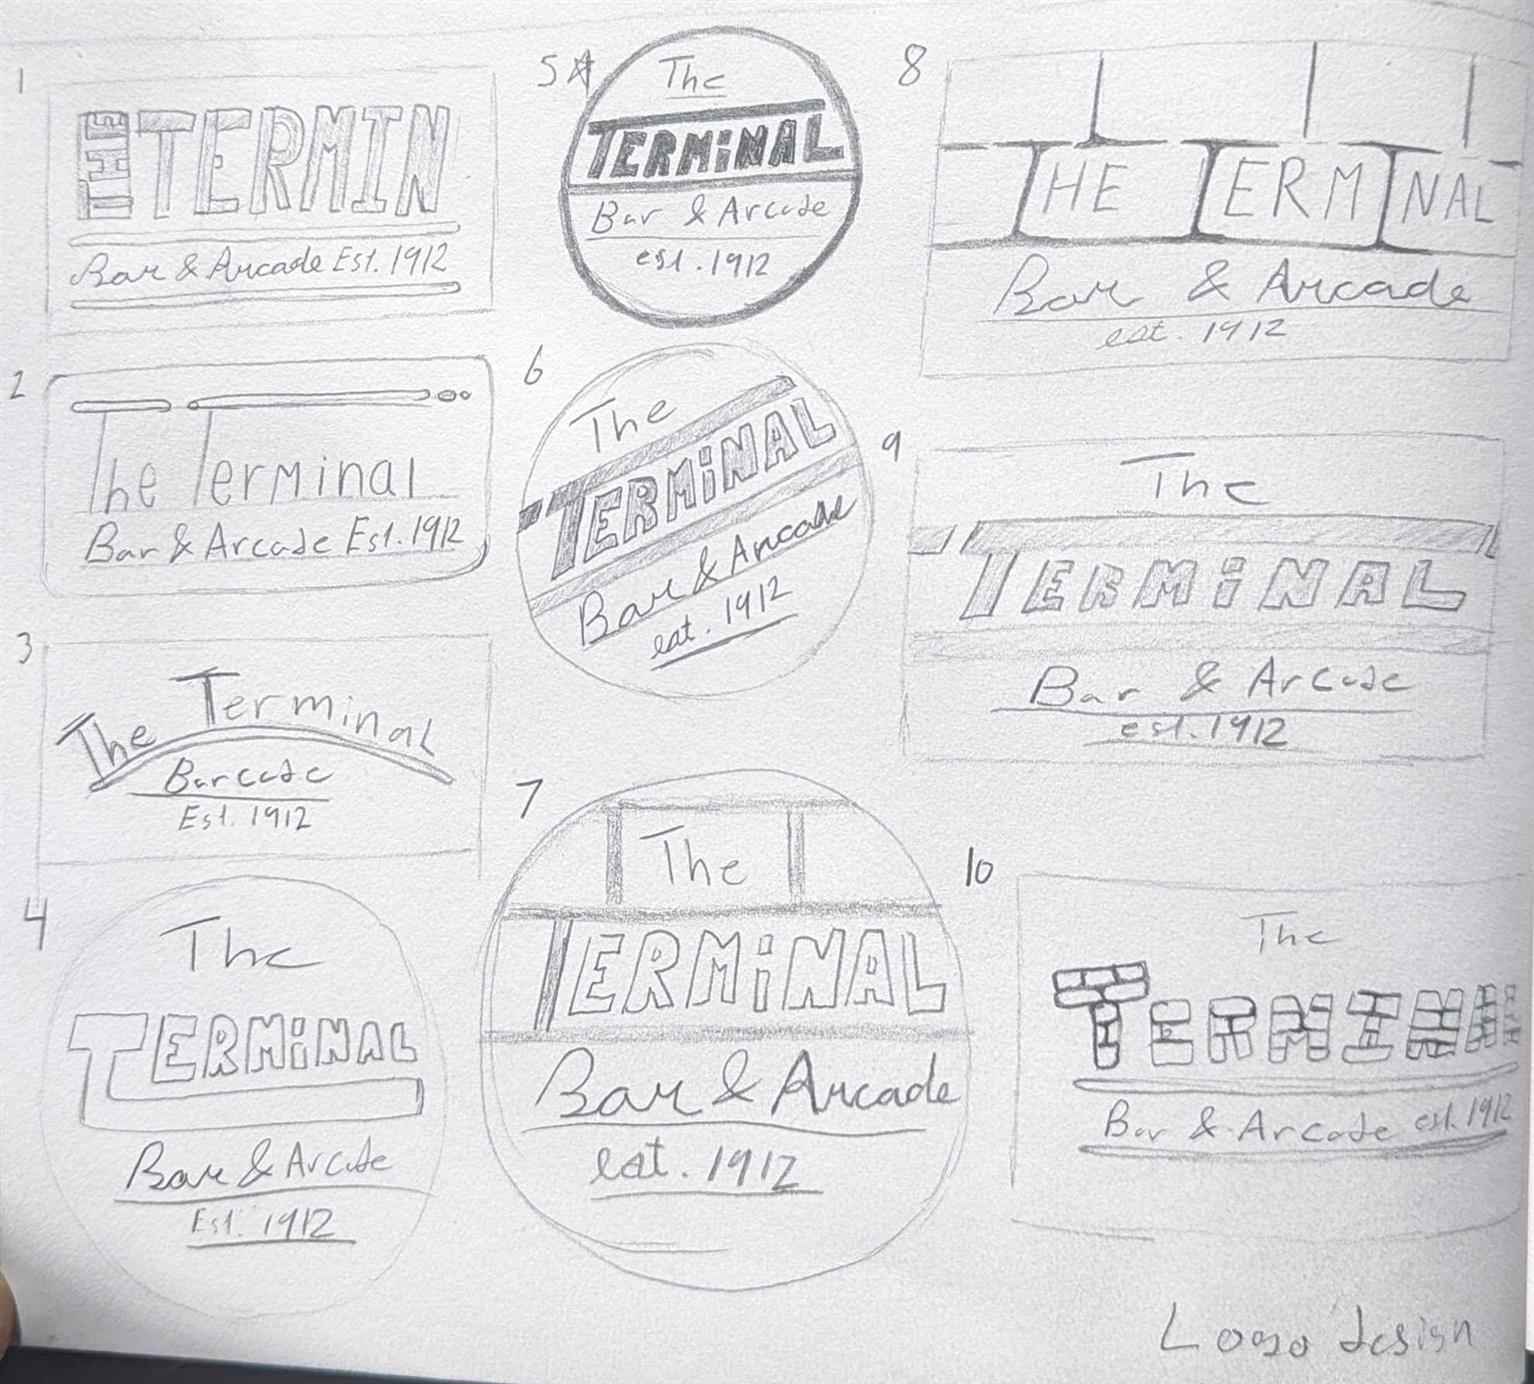 1
THE TERMIN
Bar & Arcade Est. 1912
2
The Terminal
Bar & Arcade Est. 1912
3
The Terminal
Barcade
Est. 1912
4
The
TERMiNAL
Bar & Arcade
Est. 1912
5
The
TERMiNAL
Bar & Arcade
est. 1912
6
The
TERMiNAL
Bar & Arcade
est. 1912
7
The
TERMiNAL
Bar & Arcade
est. 1912
8
THE TERMINAL
Bar & Arcade
est. 1912
9
The
TERMiNAL
Bar & Arcade
est. 1912
10
The
TERMIN
Bar & Arcade est. 1912
Logo design